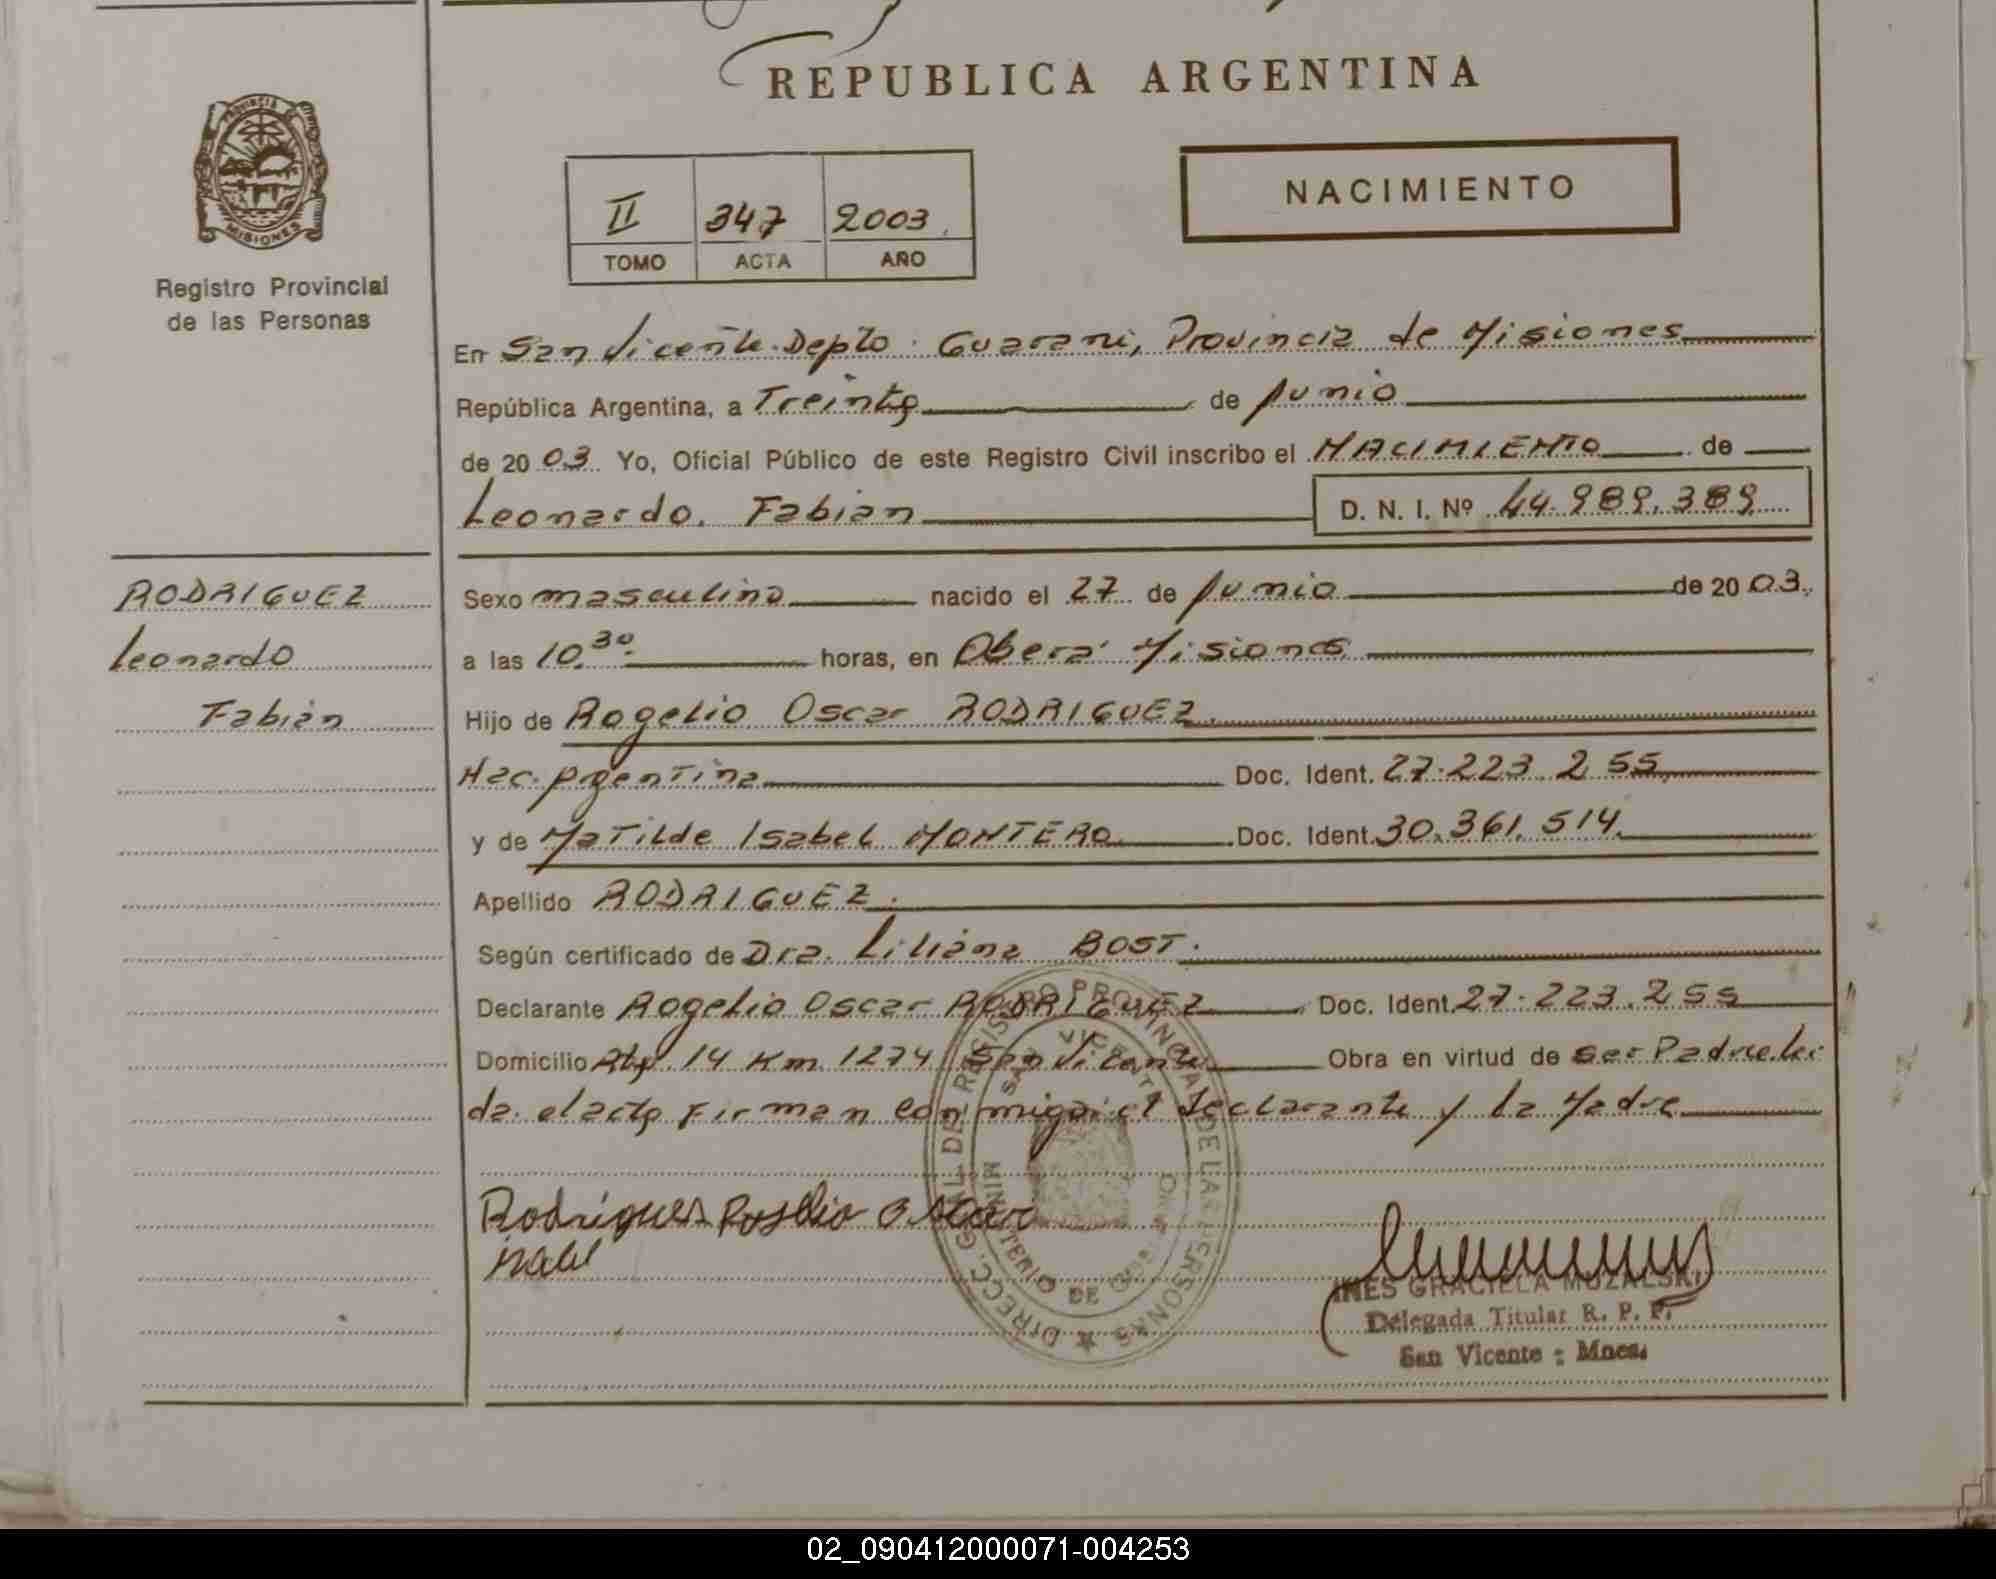 REPUBLICA ARGENTINA
PROVINCIA DE
MISIONES
Registro Provincial
de las Personas
II 347 2003
TOMO ACTA AÑO
NACIMIENTO
En San Vicente. Depto. Guarani, Provincia de Misiones
República Argentina, a Treinta de Junio
de 2003. Yo, Oficial Público de este Registro Civil inscribo el NACIMIENTO de
Leonardo, Fabian D. N. I. Nº 44.989.389
RODRIGUEZ
Leonardo
Fabián
Sexo masculino nacido el 27 de Junio de 2003.
a las 10.30 horas, en Oberá Misiones
Hijo de Rogelio Oscar RODRIGUEZ
Nac. Argentina Doc. Ident. 27.223.255
y de Matilde Isabel MONTERO Doc. Ident. 30.361.514
Apellido RODRIGUEZ.
Según certificado de Dra. Liliana BOST.
Declarante Rogelio Oscar RODRIGUEZ Doc. Ident. 27.223.255
Domicilio Rta. 14 Km. 1274 San Vicente Obra en virtud de ser Padre. lei
da. el acta Firman conmigo: el declarante y la Madre
DIRECC. GRAL. DE REGISTRO PROVINCIAL DE LAS PERSONAS
SAN VICENTE
MINISTERIO DE GOBIERNO
Rodrigues Rogelio Oscar
INES GRACIELA MUZALSKI
Delegada Titular R. P. P.
San Vicente : Mnes.
02_090412000071-004253